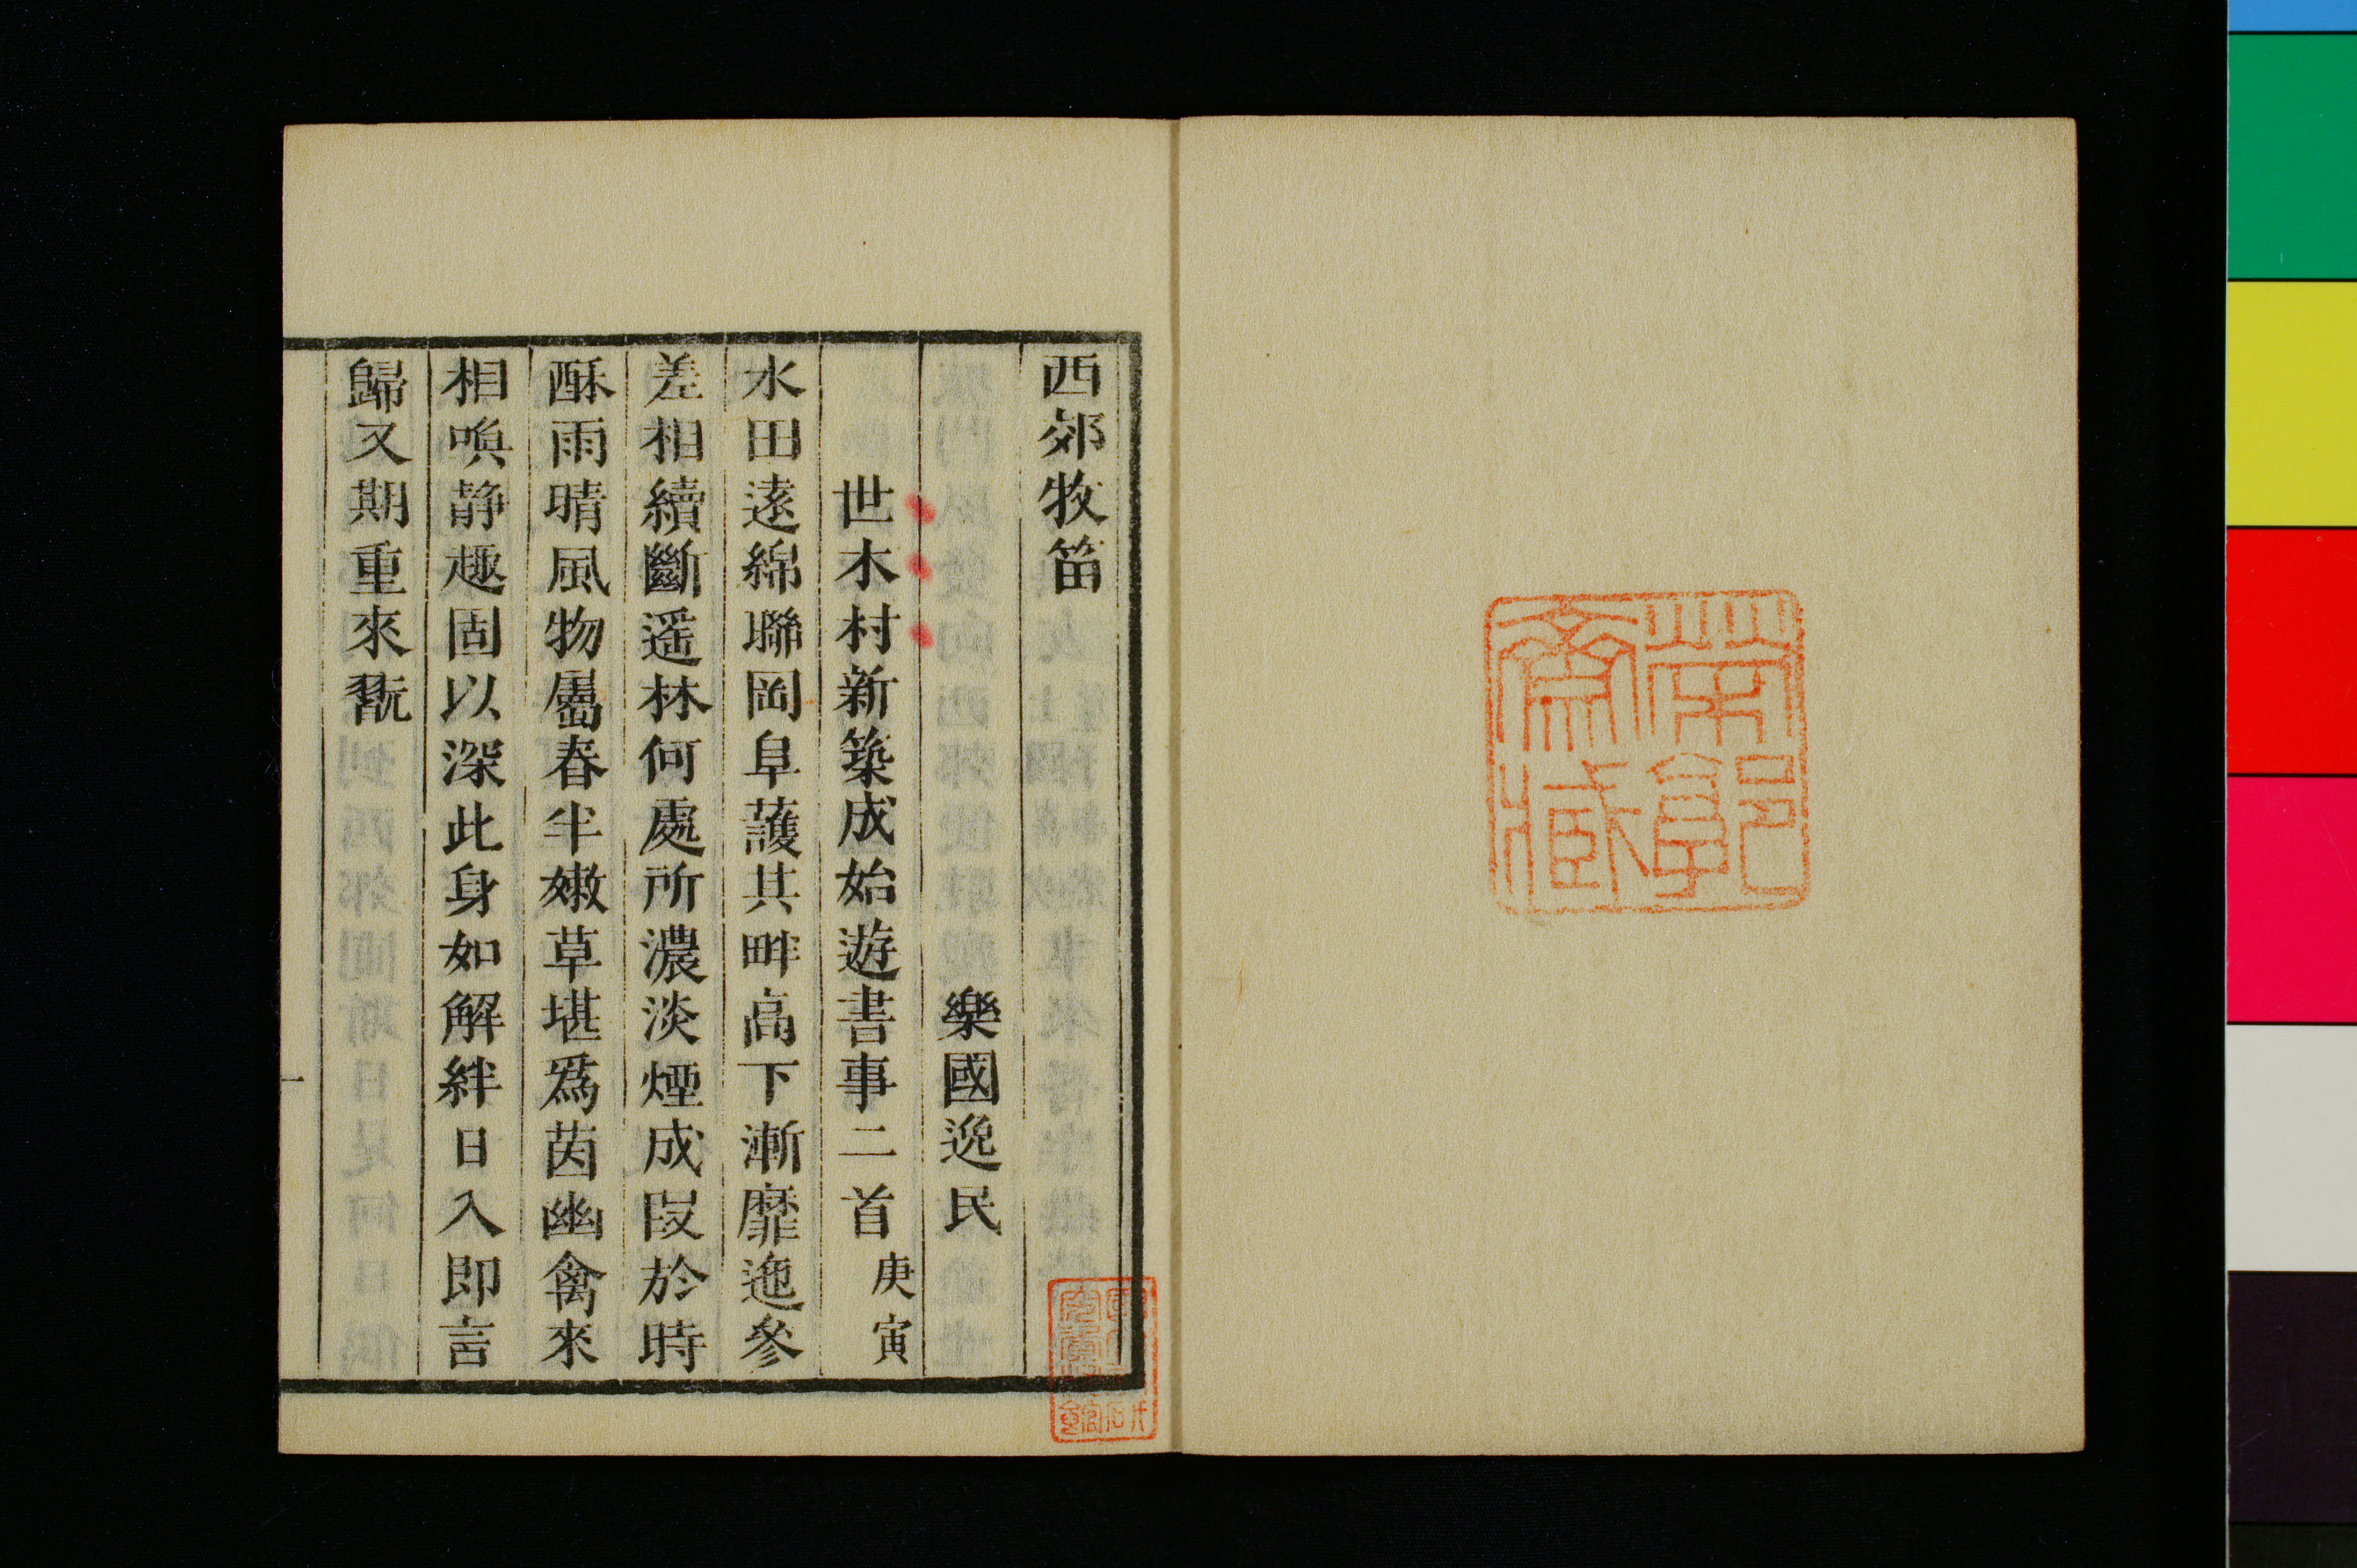 西郊牧笛
樂國逸民
世木村新築成始遊書事二首 庚寅
水田遠綿聯岡阜護其畔高下漸靡迤參
差相續斷遥林何處所濃淡煙成叚於時
酥雨晴風物屬春半嫩草堪爲茵幽禽來
相喚静趣固以深此身如解絆日入即言
歸又期重來翫
一